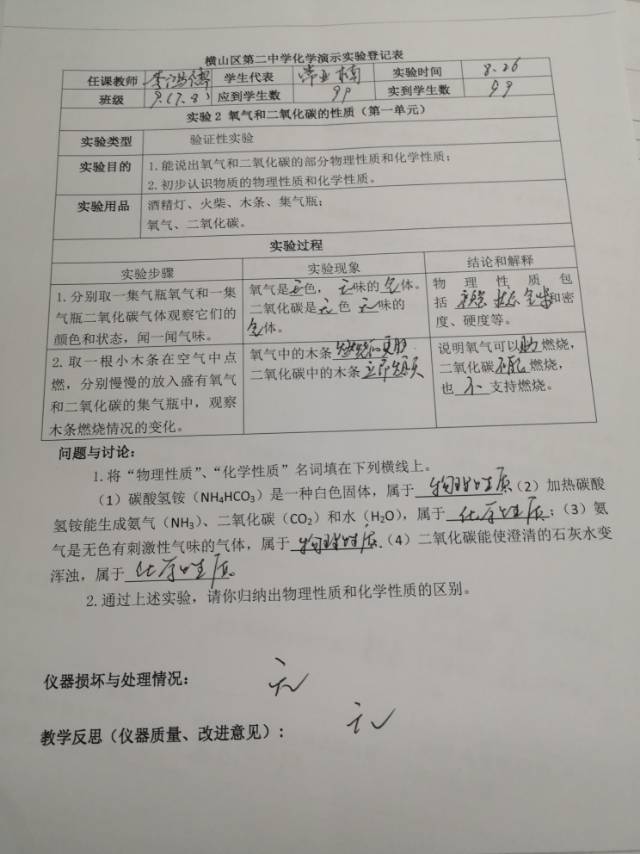 横山区第二中学化学演示实验登记表
任课教师 学生代表 实验时间 8.26
班级 9.(7.8) 应到学生数 99 实到学生数 99
实验2 氧气和二氧化碳的性质(第一单元)
实验类型 验证性实验
实验目的 1.能说出氧气和二氧化碳的部分物理性质和化学性质;
2.初步认识物质的物理性质和化学性质。
实验用品 酒精灯、火柴、木条、集气瓶;
氧气、二氧化碳。
实验过程
实验步骤 实验现象 结论和解释
1.分别取一集气瓶氧气和一集
气瓶二氧化碳气体观察它们的
颜色和状态,闻一闻气味。
氧气是无色,无味的气体。
二氧化碳是无色无味的
气体。
物理性质包
括 状态 和密
度、硬度等。
2.取一根小木条在空气中点
燃,分别慢慢的放入盛有氧气
和二氧化碳的集气瓶中,观察
木条燃烧情况的变化。
氧气中的木条燃烧的更旺
二氧化碳中的木条立即熄灭
说明氧气可以助燃烧,
二氧化碳不能燃烧,
也不支持燃烧。
问题与讨论:
1.将“物理性质”、“化学性质”名词填在下列横线上。
(1)碳酸氢铵(NH4HCO3)是一种白色固体,属于物理性质(2)加热碳酸
氢铵能生成氨气(NH₃)、二氧化碳(CO₂)和水(H₂O),属于化学性质;(3)氨
气是无色有刺激性气味的气体,属于物理性质.(4)二氧化碳能使澄清的石灰水变
浑浊,属于化学性质。
2.通过上述实验,请你归纳出物理性质和化学性质的区别。
仪器损坏与处理情况: 无
教学反思(仪器质量、改进意见): 无